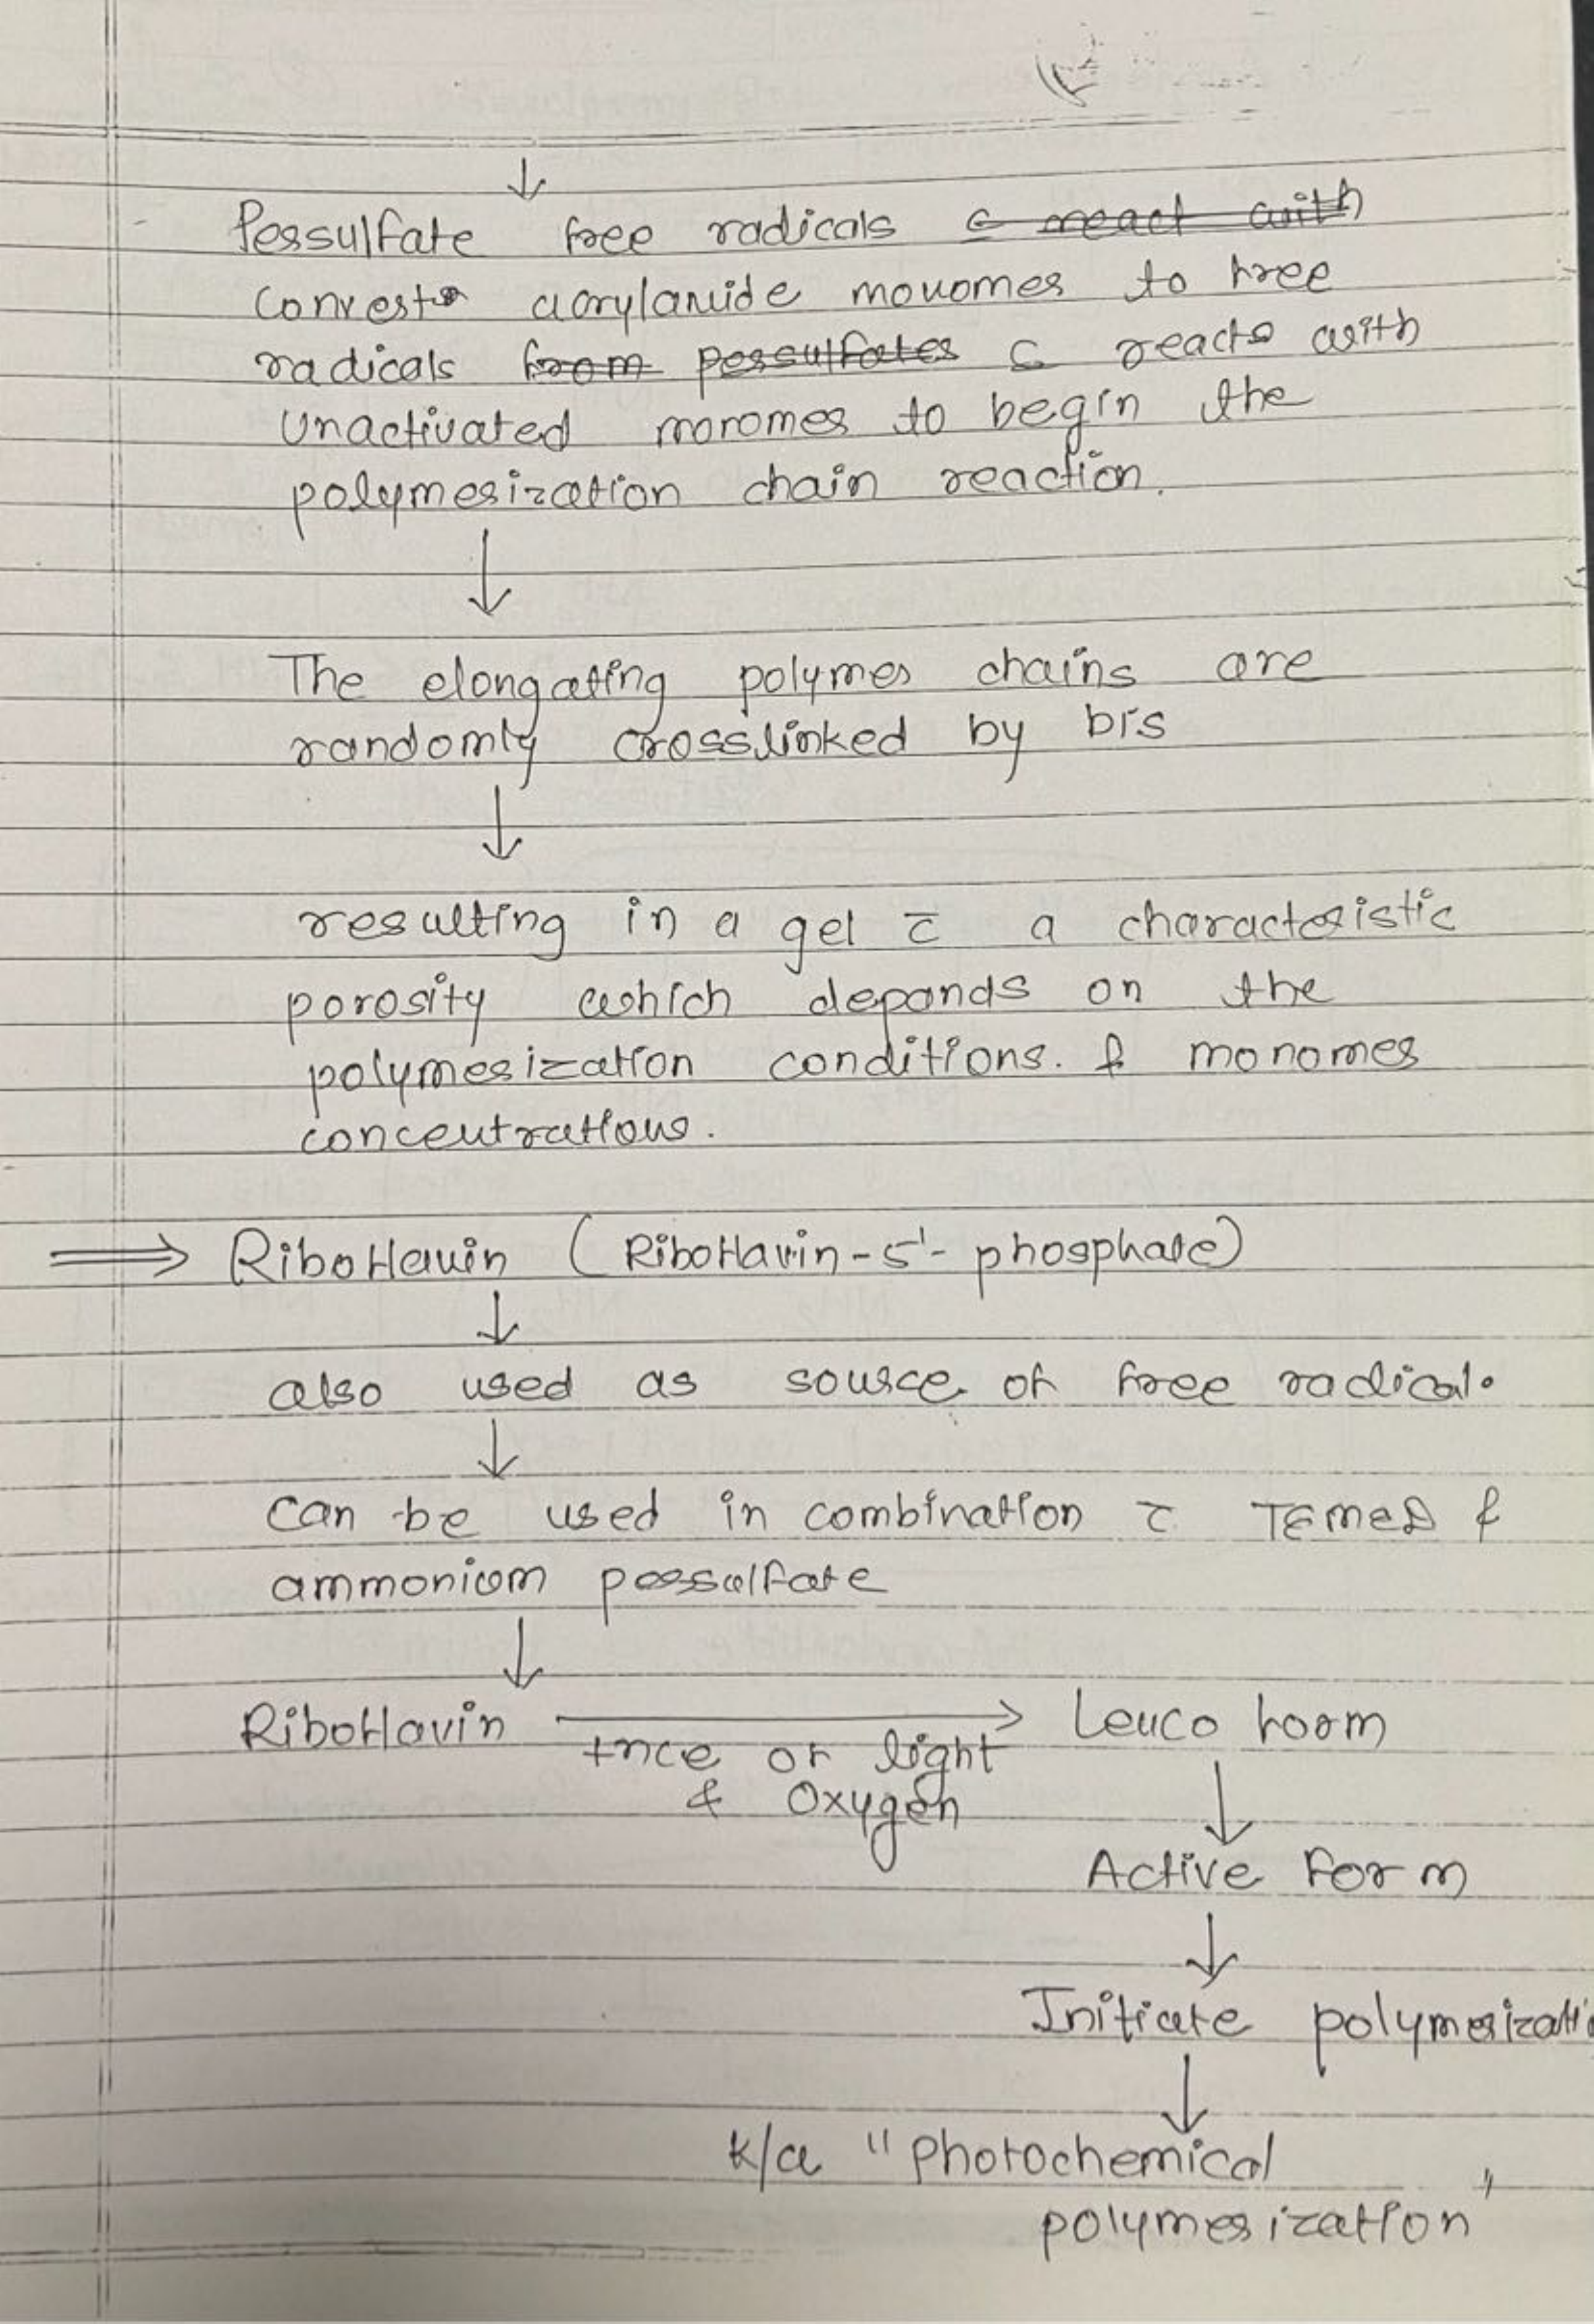 ↓
Persulfate free radicals c react with
convert acrylamide monomer to free
radicals from persulfates c reacts with
unactivated monomer to begin the
polymerization chain reaction.
↓
The elongating polymer chains are
randomly crosslinked by bis
↓
resulting in a gel c̄ a characteristic
porosity which depends on the
polymerization conditions. & monomer
concentrations.
⟹ Riboflavin (Riboflavin-5'-phosphate)
↓
also used as source of free radical.
↓
can be used in combination c̄ TEMED &
ammonium persulfate
↓
Riboflavin → Leuco form
+nce of light
& oxygen
↓
Active form
↓
Initiate polymerizati
↓
k/a "Photochemical
polymerization"